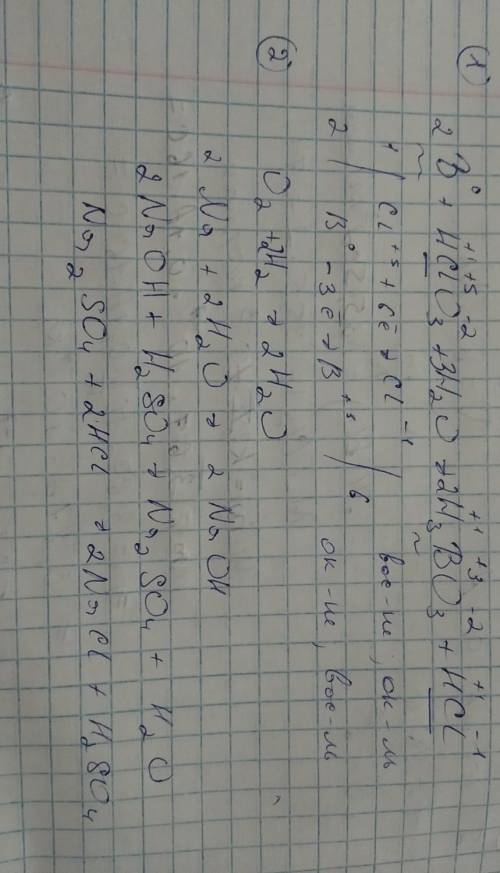 ① 2B⁰ + HClO₃ + 3H₂O → 2H₃BO₃ + HCl
+1 +5 -2 +1 +3 -2 +1 -1
1 / Cl⁺⁵ + 6ē → Cl⁻¹ вос-ие, ок-ль
2 / B⁰ - 3ē → B⁺³ / 6 ок-ие, вос-ль
② O₂ + 2H₂ → 2H₂O
2Na + 2H₂O → 2NaOH
2NaOH + H₂SO₄ → Na₂SO₄ + H₂O
Na₂SO₄ + 2HCl → 2NaCl + H₂SO₄